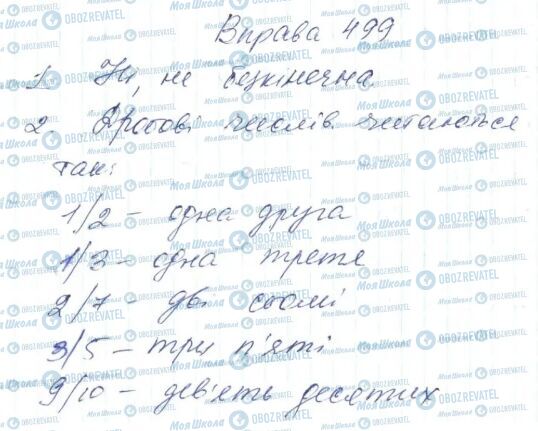 Вправа 499
1. Ні, не безкінечна.
2. Дробові числів. читаються
так:
1/2 – одна друга
1/3 – одна третя
2/7 – дві сьомі
3/5 – три п'яті
9/10 – дев'ять десятих